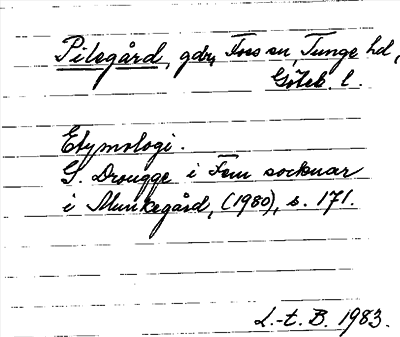 Pilegård, gdr, Foss sn, Tunge hd,
Göteb. l.
Etymologi.
G. Drougge i Fem socknar
i Munkegård, (1980), s. 171.
L.-t. B. 1983.